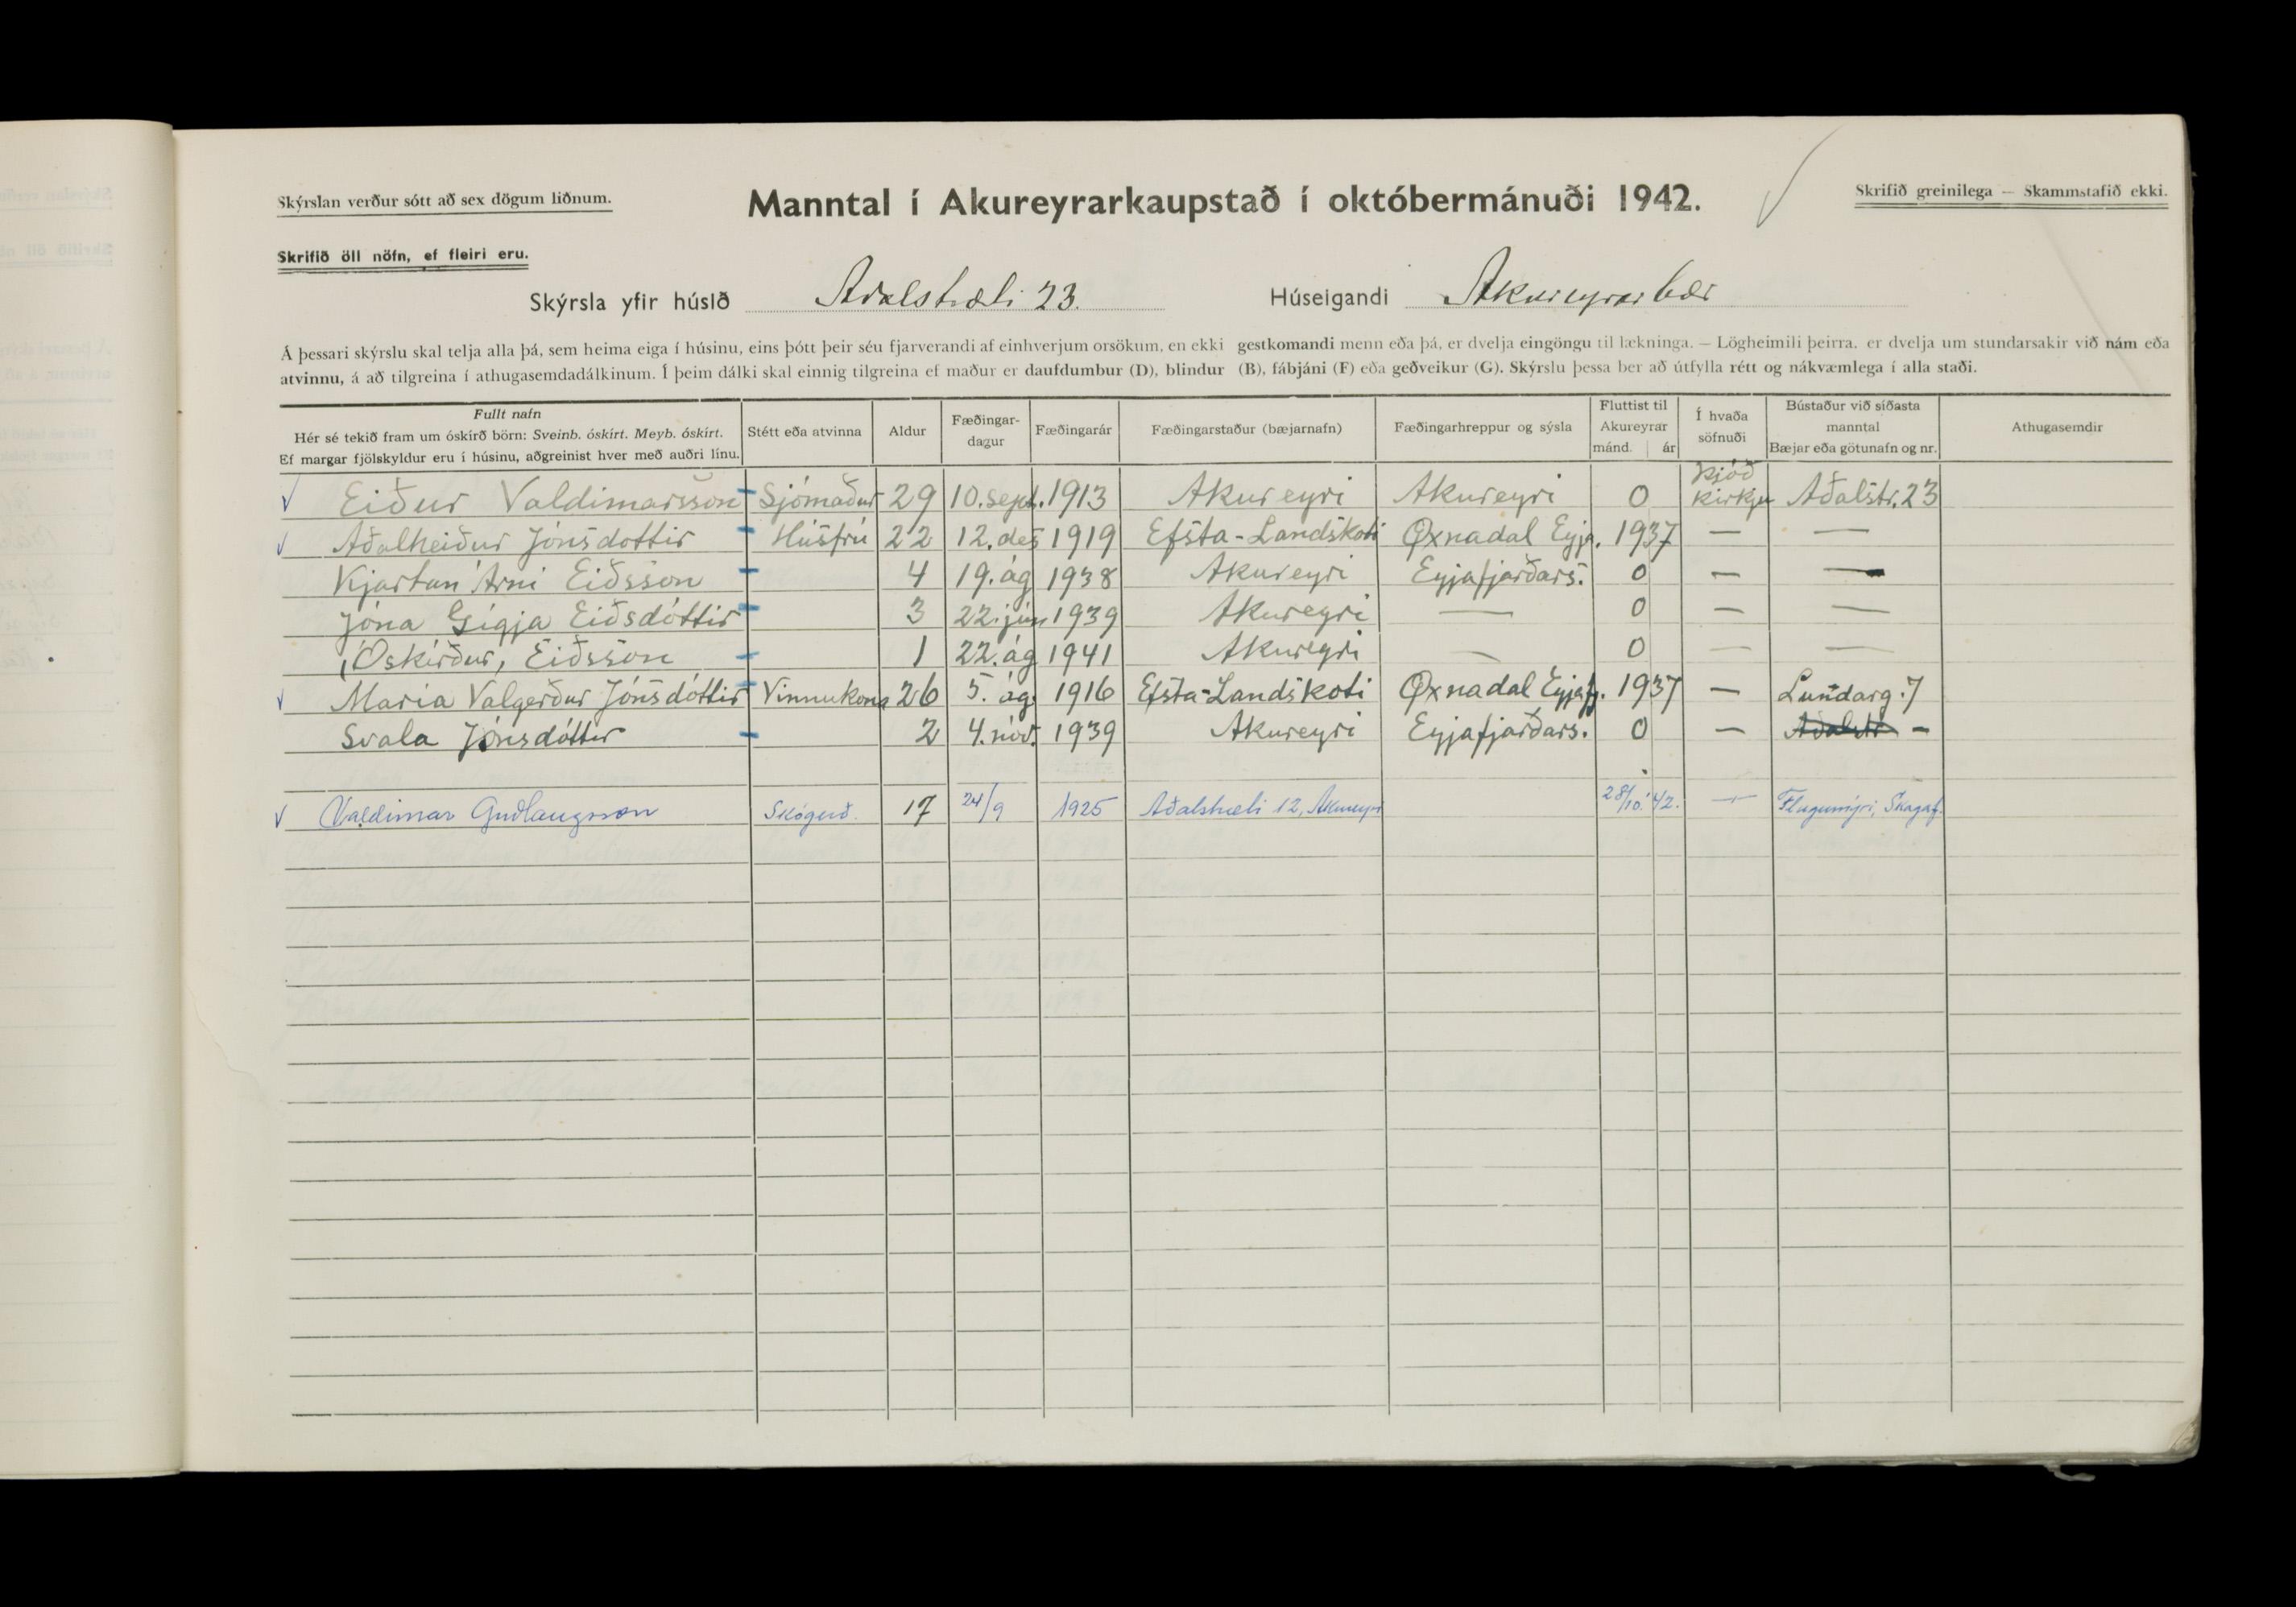 Skýrslan verður sótt að sex dögum liðnum.
Manntal í Akureyrarkaupstað í októbermánuði 1942.
Skrifið greinilega — Skammstafið ekki.
Skrifið öll nöfn, ef fleiri eru.
Skýrsla yfir húsið Aðalstræti 23. Húseigandi Akureyrarbær
Á þessari skýrslu skal telja alla þá, sem heima eiga í húsinu, eins þótt þeir séu fjarverandi af einhverjum orsökum, en ekki gestkomandi menn eða þá, er dvelja eingöngu til lækninga. — Lögheimili þeirra, er dvelja um stundarsakir við nám eða
atvinnu, á að tilgreina í athugasemdadálkinum. Í þeim dálki skal einnig tilgreina ef maður er daufdumbur (D), blindur (B), fábjáni (F) eða geðveikur (G). Skýrslu þessa ber að útfylla rétt og nákvæmlega í alla staði.
Fullt nafn
Hér sé tekið fram um óskírð börn: Sveinb. óskírt. Meyb. óskírt.
Ef margar fjölskyldur eru í húsinu, aðgreinist hver með auðri línu.
Stétt eða atvinna
Aldur
Fæðingar-
dagur
Fæðingarár
Fæðingarstaður (bæjarnafn)
Fæðingarhreppur og sýsla
Fluttist til
Akureyrar
mánd. ár
Í hvaða
söfnuði
Bústaður við síðasta
manntal
Bæjar eða götunafn og nr.
Athugasemdir
Eiður Valdimarsson Sjómaður 29 10. sept. 1913 Akureyri Akureyri 0 Þjóð kirkju Aðalstr. 23
Aðalheiður Jónsdottir Húsfrú 22 12. des 1919 Efsta-Landskoti Øxnadal Eyja. 1937 — —
Kjartan Árni Eiðsson 4 19. ág 1938 Akureyri Eyjafjarðars. 0 — —
Jóna Gígja Eiðsdóttir 3 22. jún 1939 Akureyri — 0 — —
,Óskírður, Eiðsson 1 22. ág 1941 Akureyri — 0 — —
Maria Valgerður Jónsdóttir Vinnukona 26 5. ág. 1916 Efsta-Landskoti Øxnadal Eyjafj. 1937 — Lundarg. 7
Svala Jónsdóttir 2 4. nóv. 1939 Akureyri Eyjafjarðars. 0 — Aðalstr —
Valdimar Guðlaugsson Skógerð. 17 24/9 1925 Aðalstræti 12, Akureyri 28/10. 42. — Flugumýri, Skagaf.